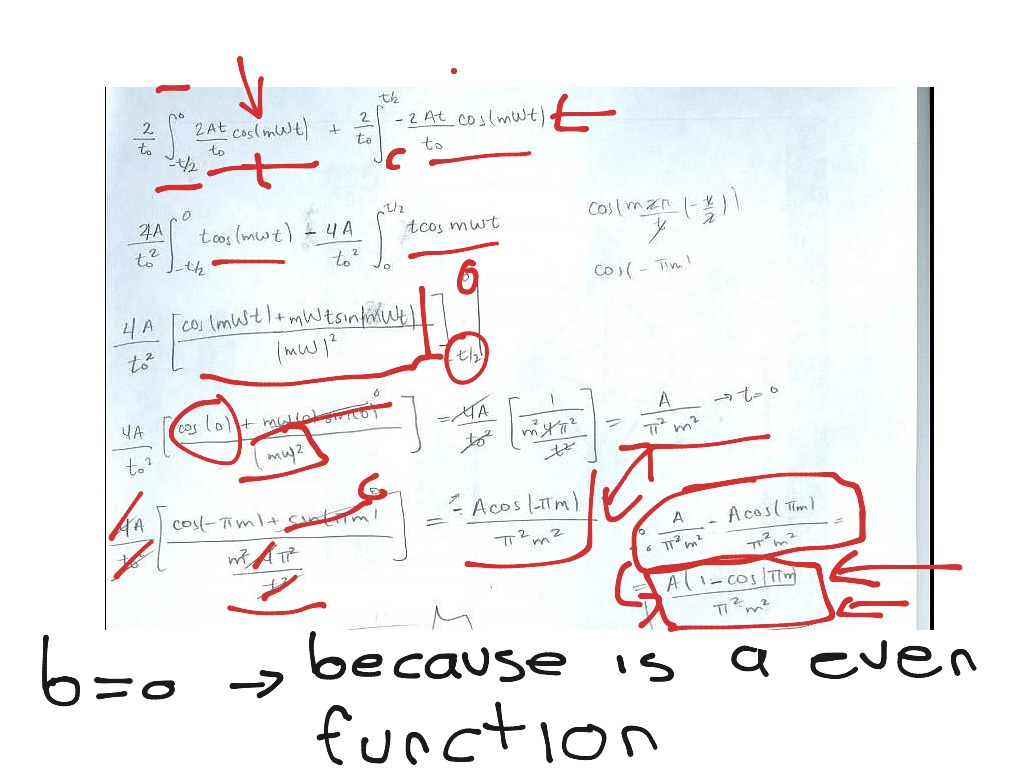 2/t₀ ∫_{-t/2}^{0} 2At/t₀ cos(mWt) + 2/t₀ ∫^{t/2} -2At/t₀ cos(mWt)
4A/t₀² ∫_{-t/2}^{0} tcos(mwt) - 4A/t₀² ∫_{0}^{t/2} tcos mwt
cos(m2π/t (-t/2))
cos(-πm)
4A/t₀² [cos(mWt)+mWtsin(mWt)/(mW)²] 0 -t/2
4A/t₀² [cos(0)+mw(0)sin(0) 0/(mw)²] = 4A/t₀² [1/(m²4π²/t²)] = A/π²m² → t=0
4A/t₀² [cos(-πm)+sin(πm) 0/(m²4π²/t²)] = - Acos(-πm)/π²m²
∴ A/π²m² - Acos(πm)/π²m² =
= A(1-cos(πm)/π²m²
b=0 → because is a even
function